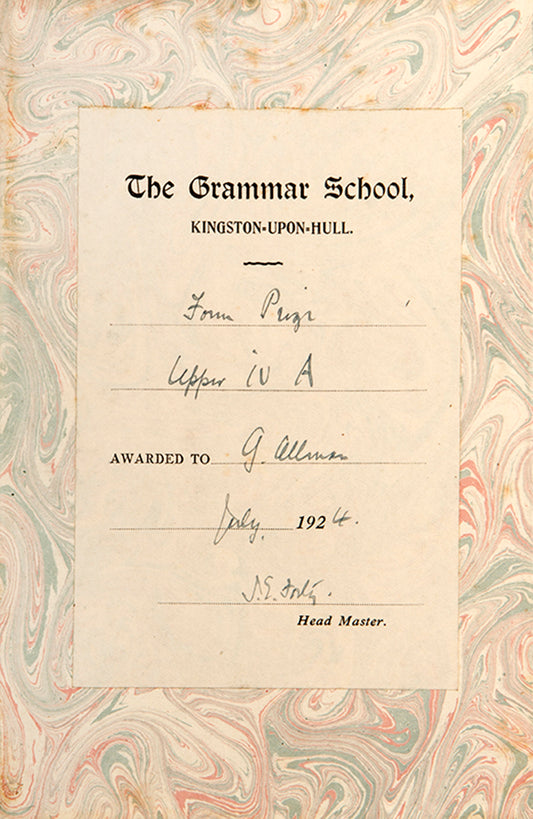 The Grammar School,
KINGSTON-UPON-HULL.
Form Prize
Upper IV A
AWARDED TO G. Allman
July, 1924.
J.E. Forty.
Head Master.